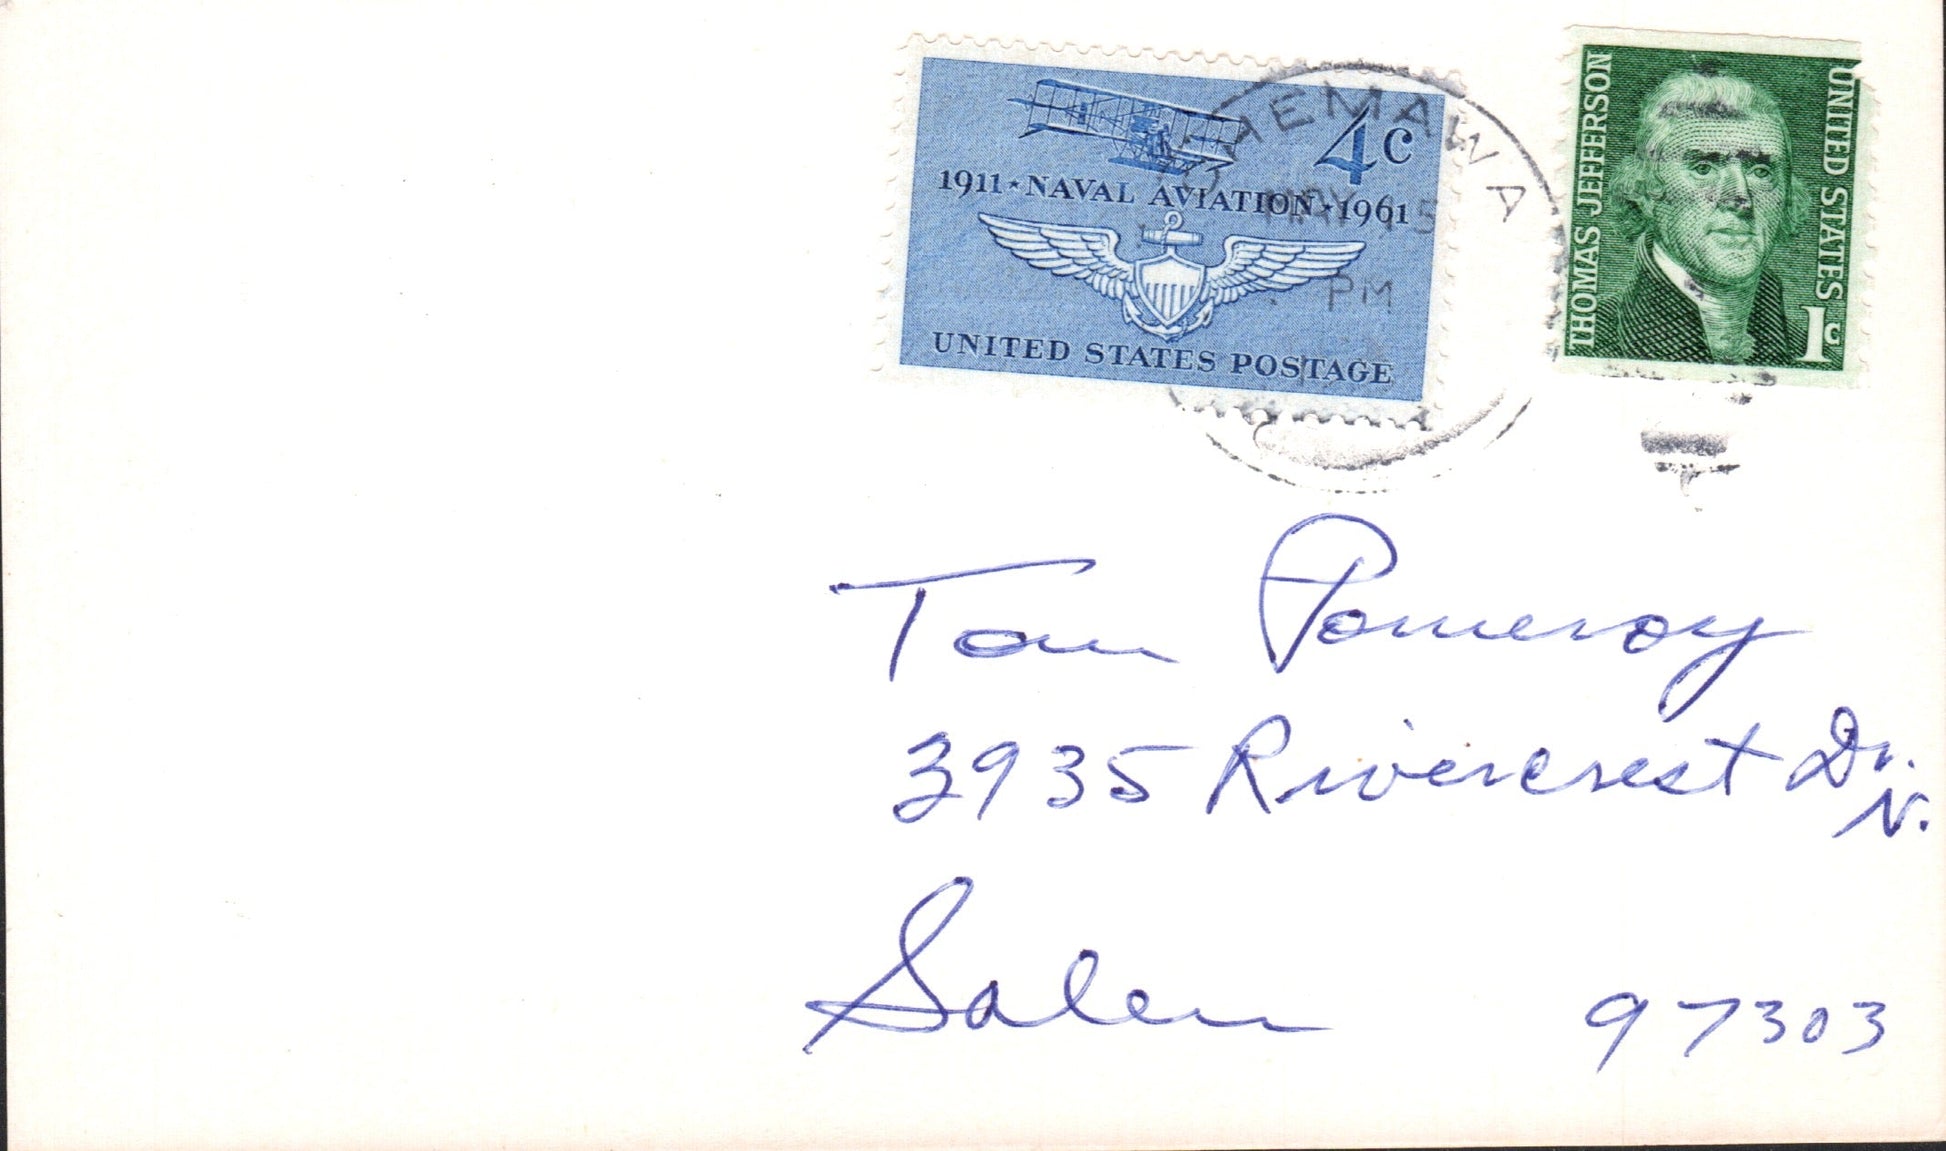 4c
1911 ★ NAVAL AVIATION ★ 1961
UNITED STATES POSTAGE
HEMAWA
MAY 15
PM
THOMAS JEFFERSON
UNITED STATES
1c
Tom Pomeroy
3935 Rivercrest Dr.
N.
Salem 97303